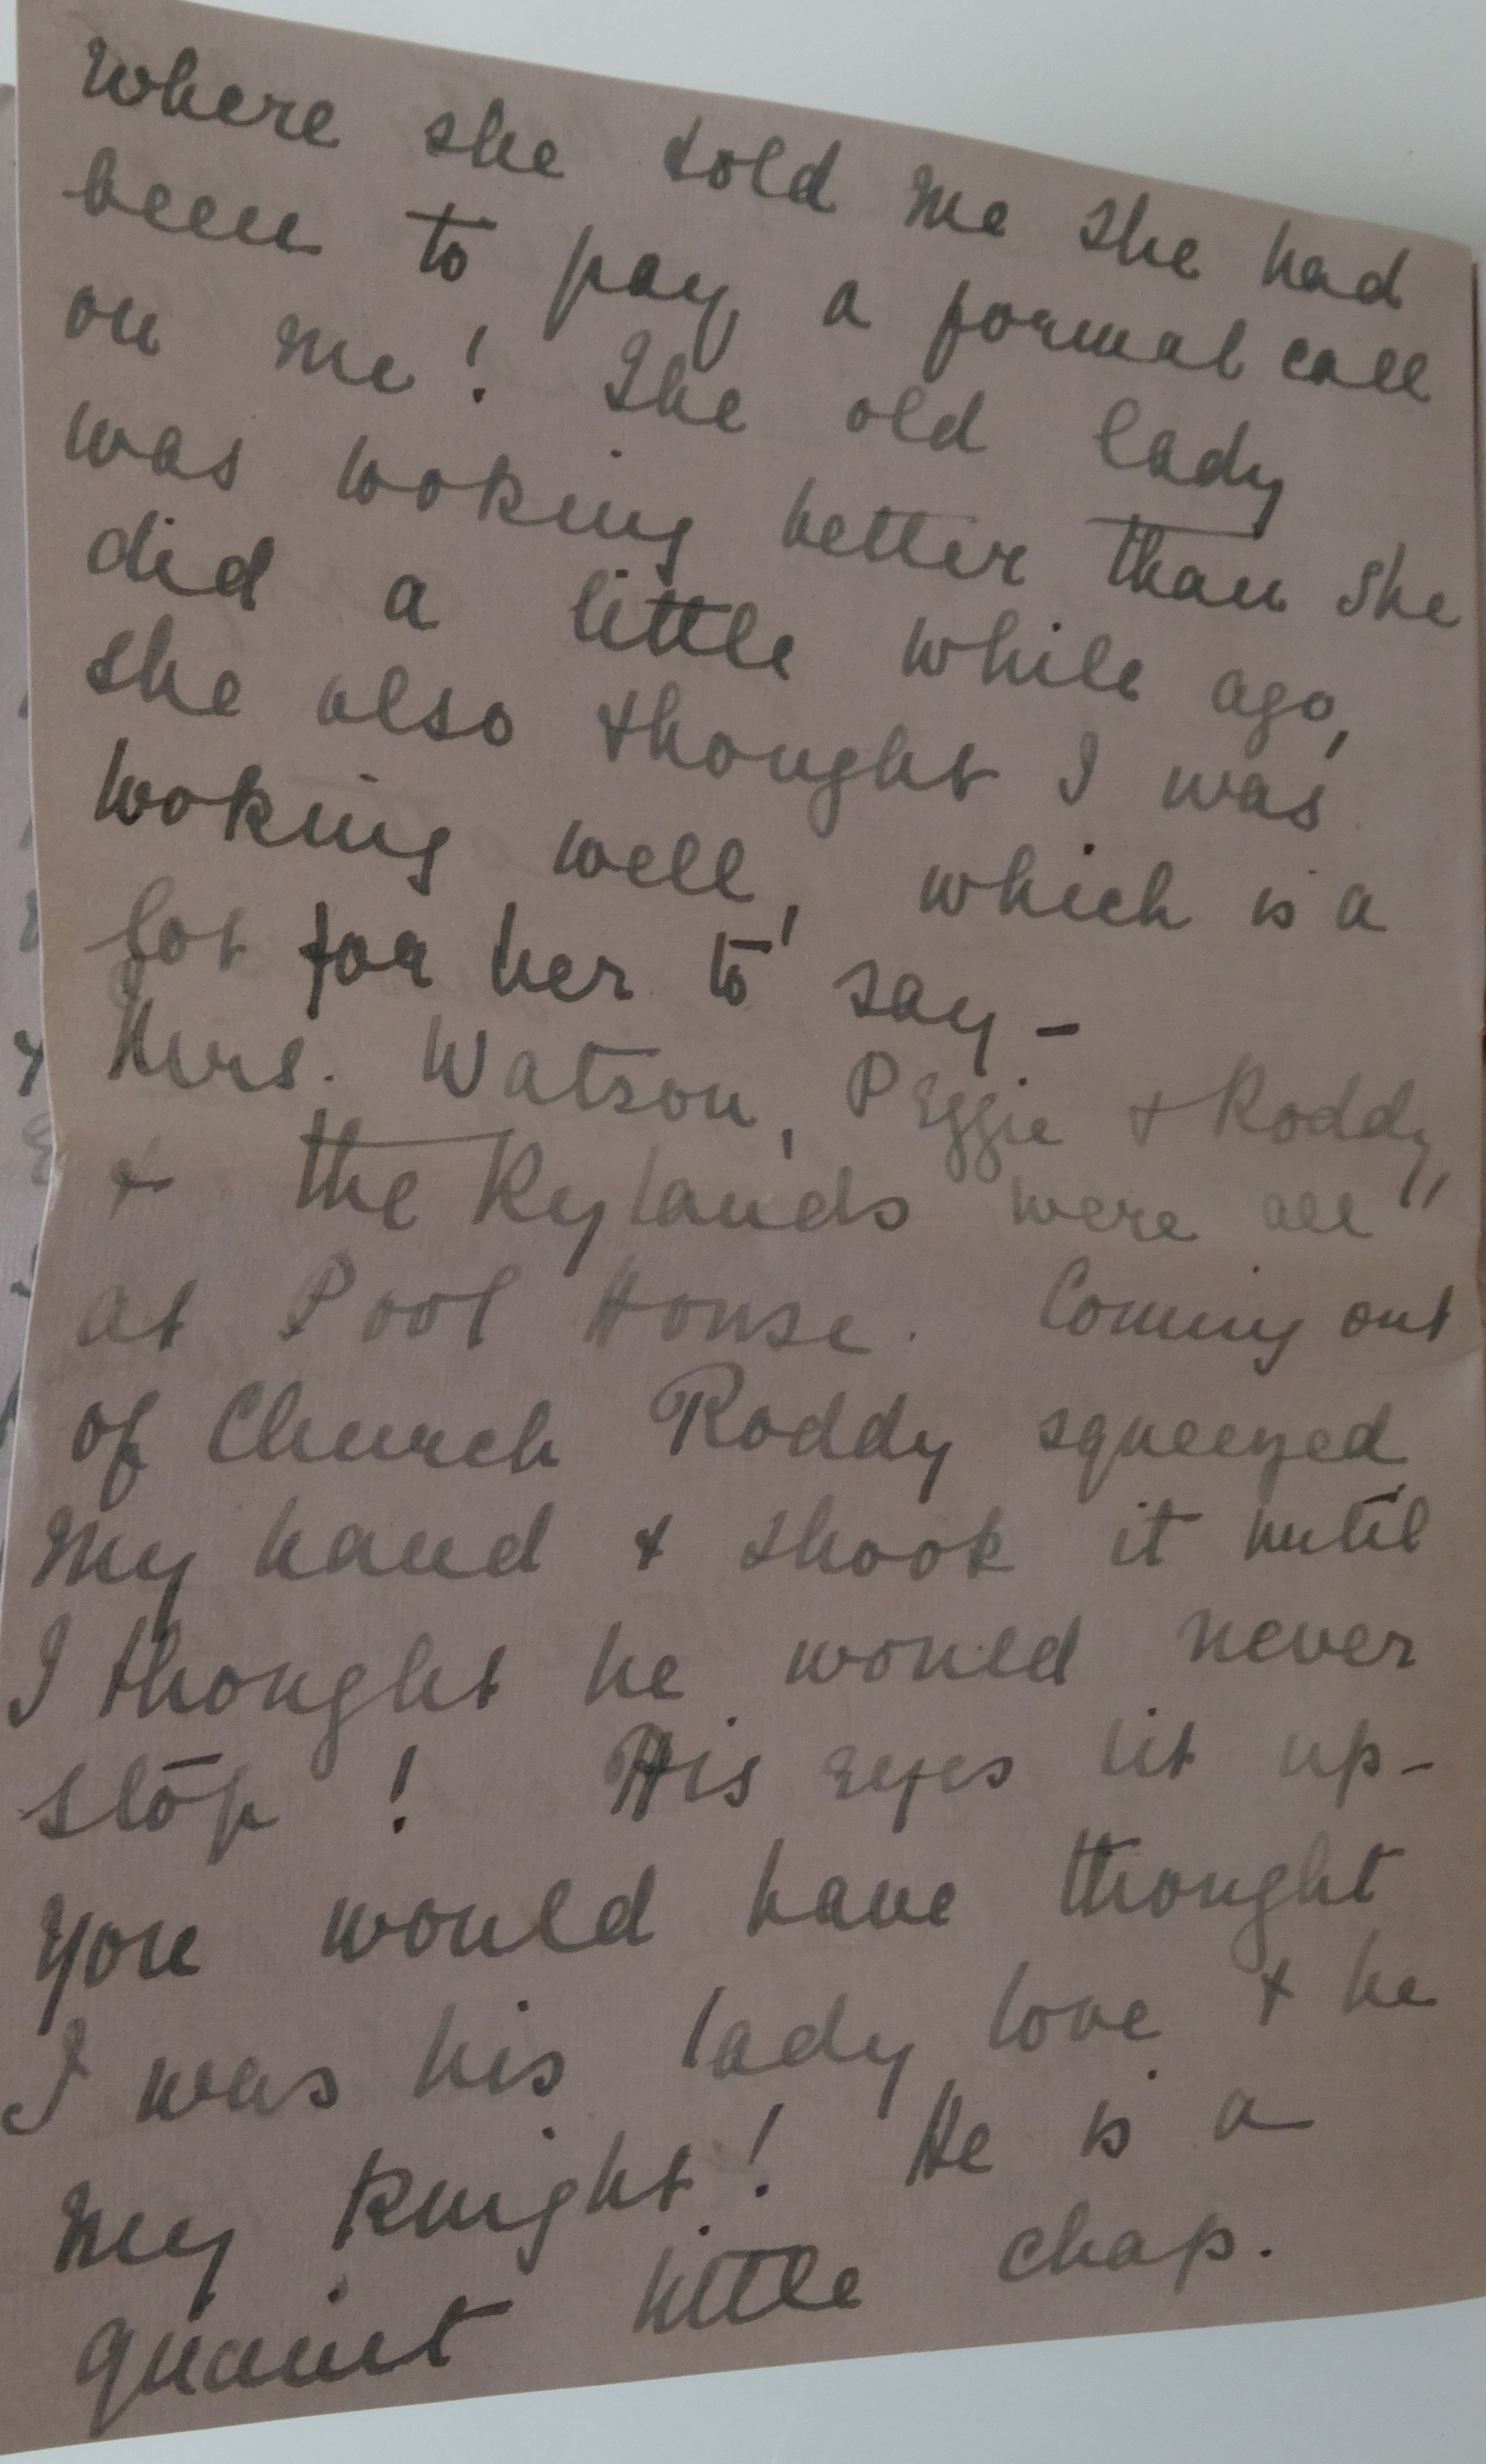 where she told me she had
been to pay a formal call
on me! The old lady
was looking better than she
did a little while ago,
she also thought I was
looking well, which is a
lot for her to say -
Mrs. Watson, Peggie & Roddy,
& the Rylands were all
at Pool House. Coming out
of Church Roddy squeezed
my hand & shook it until
I thought he would never
stop! His eyes lit up -
you would have thought
I was his lady love & he
my knight! He is a
quaint little chap.